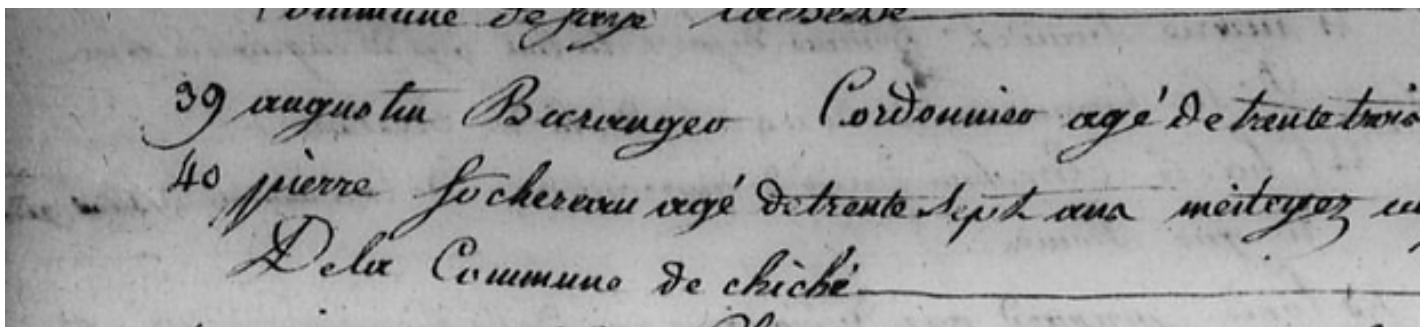 Commune de faye
39 augustin Baranger Cordonnier agé de trente trois
40 pierre Sochereau agé de trente sept ans meiteyez
De la Commune de chiché